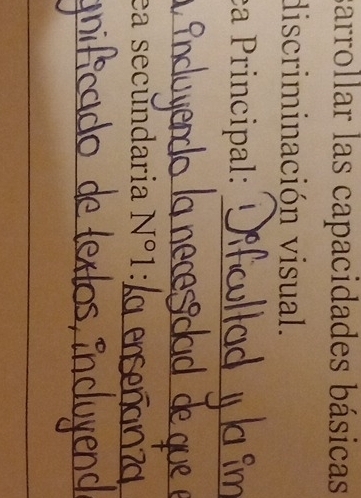 sarrollar las capacidades básicas
discriminación visual.
ea Principal: Dificultad y la im
a, incluyendo la necesidad de que e
ea secundaria N°1: La enseñanza
gnificado de textos, incluyend